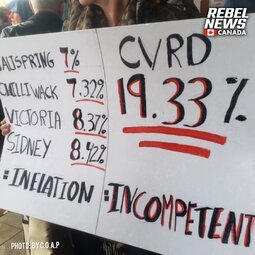 REBEL
NEWS
CANADA
ALTSPRING 7%
CHILLIWACK 7.32%
VICTORIA 8.37%
SIDNEY 8.42%
= INFLATION
CVRD
19.33%
= INCOMPETENT
PHOTO: BY C.O.A.P